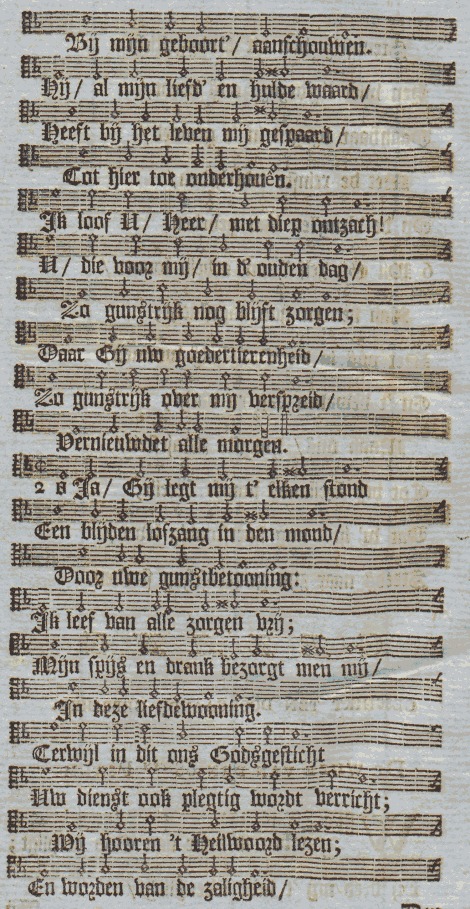 Bij mijn geboort'/ aanschouwen.
Hij/ al mijn liefd' en hulde waard/
Heeft bij het leven mij gespaard/
Tot hier toe onderhouên.
Ik loof U/ Heer/ met diep ontzach!
U/ die voor mij/ in d' ouden dag/
Zo gunstrijk nog blijft zorgen;
Daar Gij uw goedertierenheid/
Zo gunstrijk over mij verspreid/
Vernieuwdet alle morgen.
2 B Ja/ Gij legt mij t' elken stond
Een blijden lofzang in den mond/
Door uwe gunstbetooning:
Ik leef van alle zorgen vrij;
Mijn spijs en drank bezorgt men mij/
In deze liefdewooning.
Terwijl in dit ons Godsgesticht
Uw dienst ook plegtig wordt verricht;
Wij hooren 't Heilwoord lezen;
En worden van de zaligheid/